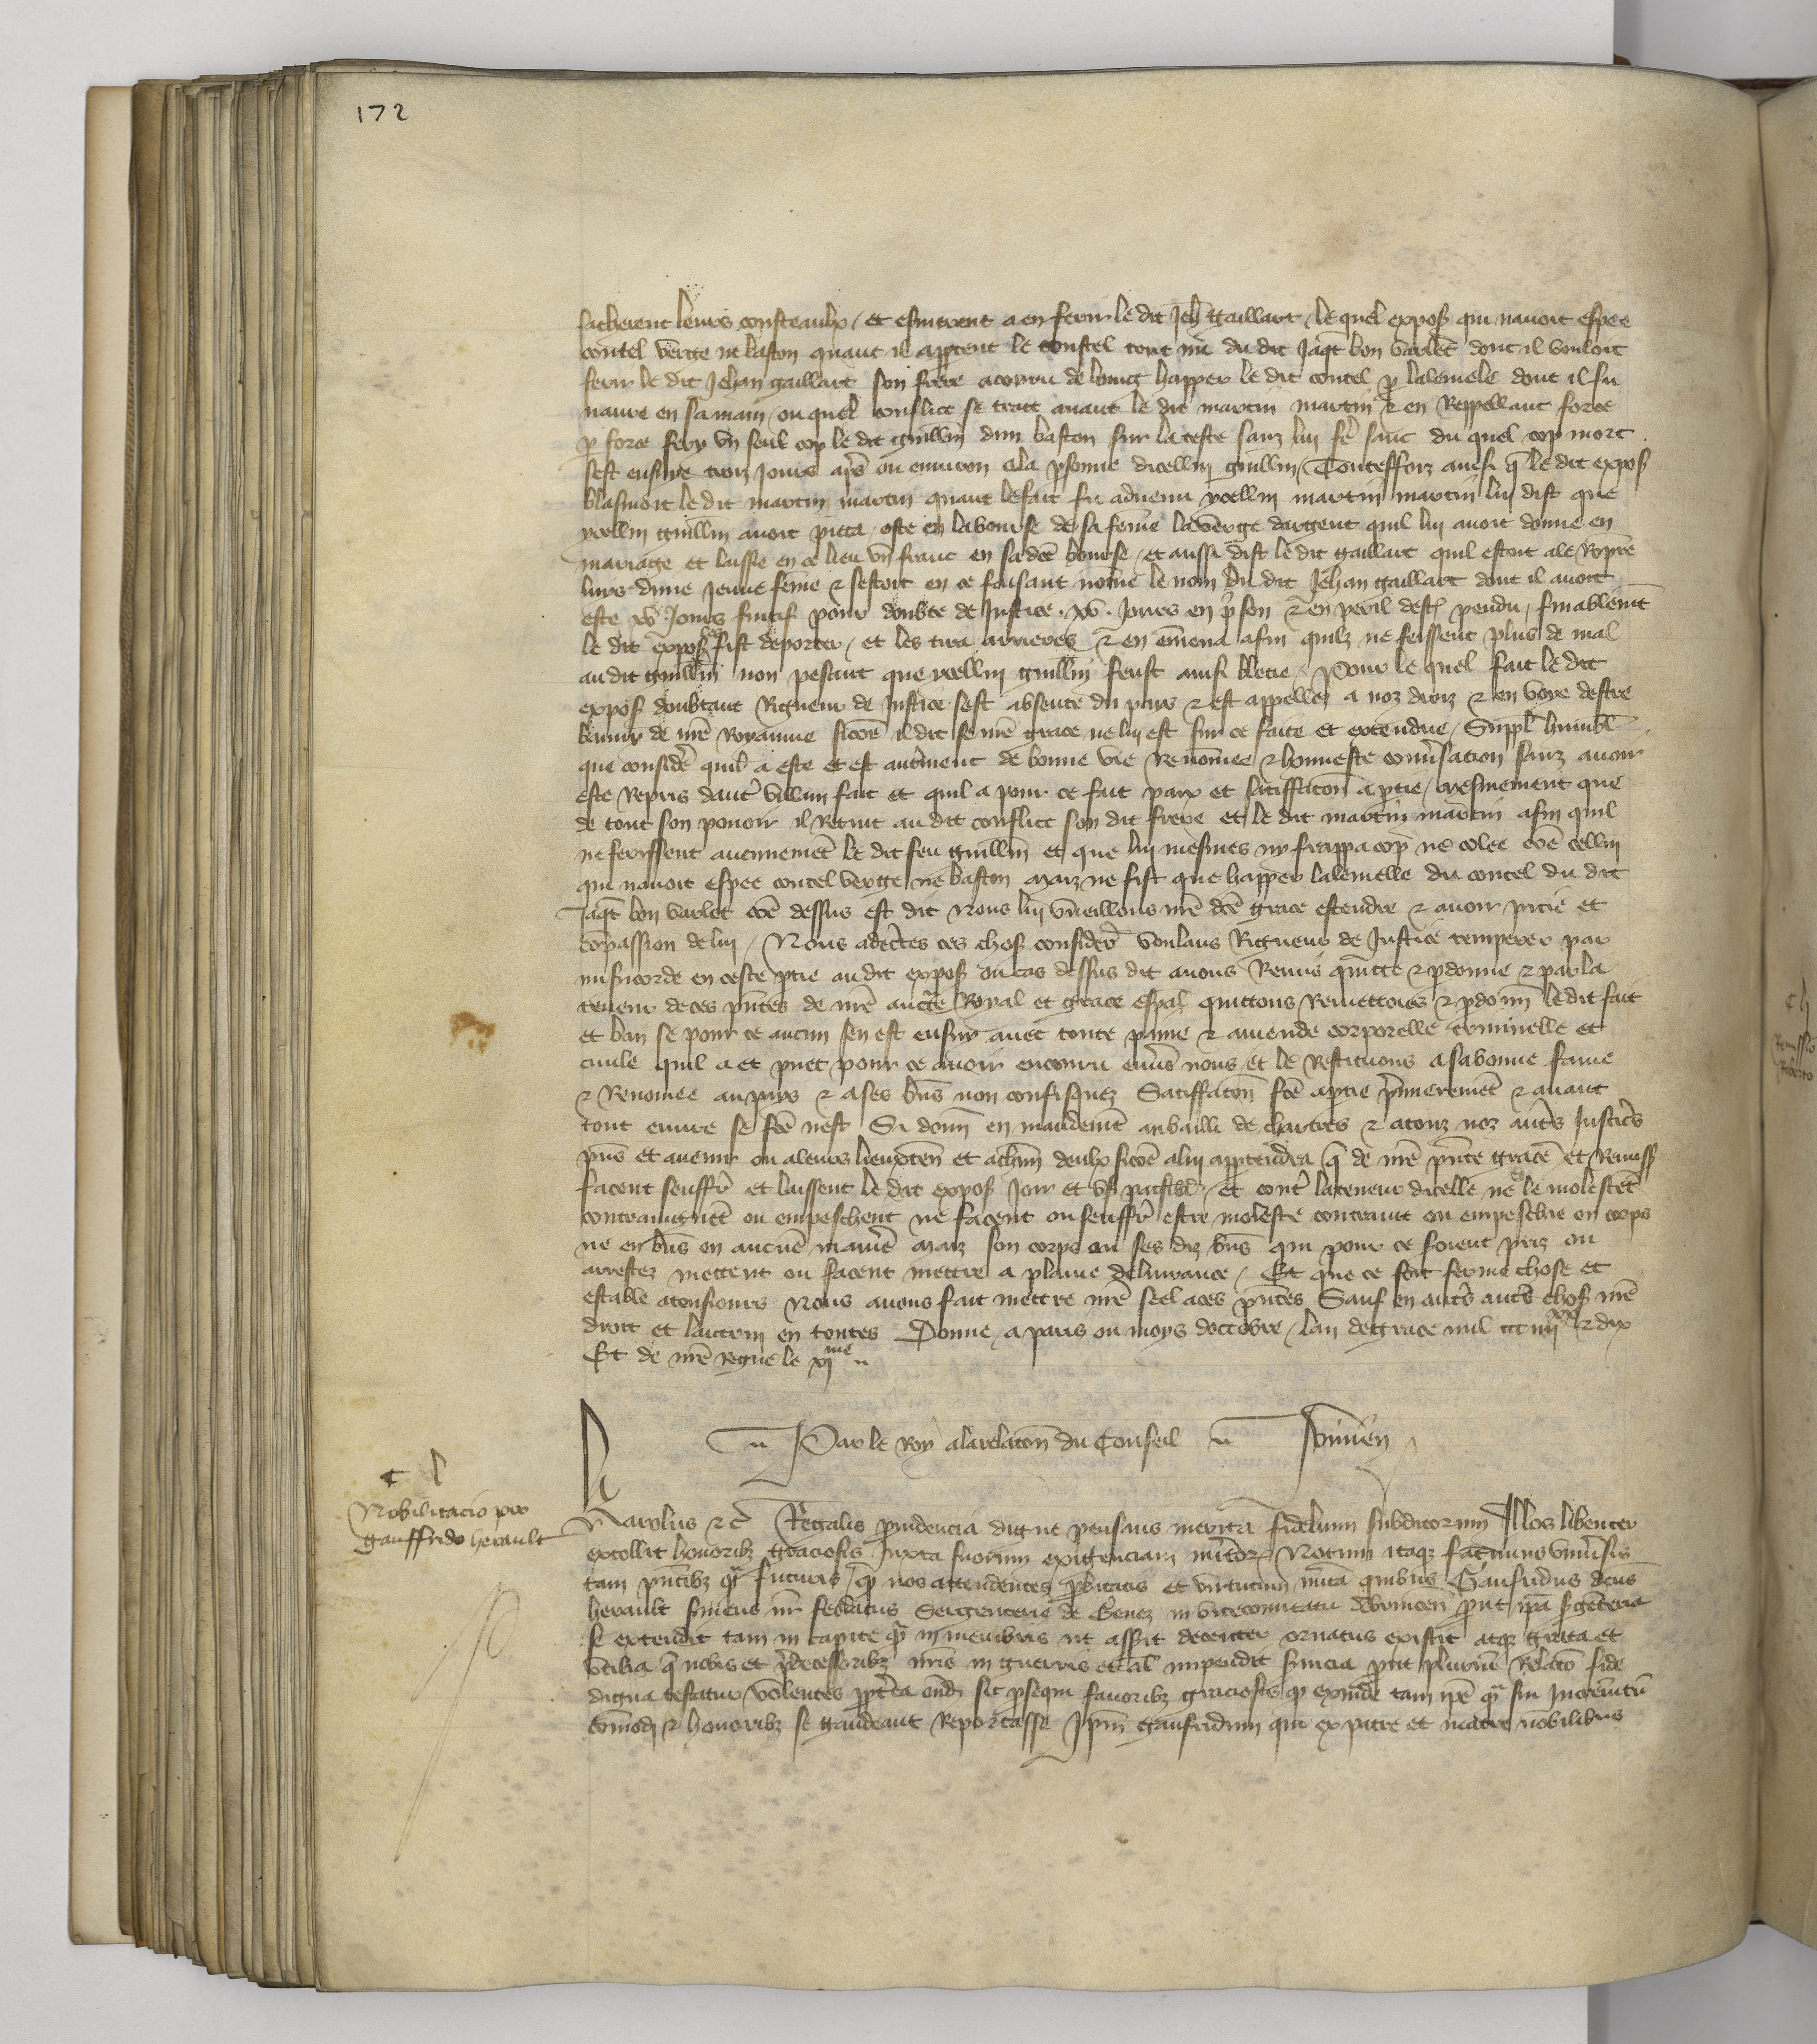 172
sacherent leurs cousteaulx / et esmurent a en ferir le dit Jeh Gaillart / le quel expos qui navoit espee
coutel verge ne baston quant il apperceut le coustel tout nu du dit Jaqt bon varlet dont il vouloit
ferir le dit Jehan Gaillart son frere acouru de loing happer le dit coutel p lalemele dont il fu
navre en sa main / ou quel conflict se trait avant le dit martin martin et en Reppellant force
p force fery un seul cop le dit guillin dun baston sur la teste sanz lui fe sanc du quel cop mort
sest ensuye trois jours aps ou environ a la psonne dicellui guillin / Toutesfoiz ainsi q le dit expos
blasmoit le dit martin martin quant le fait fu advenu ycellui martin martin lui dist que
ycellui guillin avoit pieca oste en la bourse de sa feme la verge dargent quil lui avoit donne en
mariage et laissie en ce lieu un franc en sa dce bourse / et aussi dist le dit gaillart quil estoit ale Ropre
luys dune jeune feme et sestoit en ce faisant nome le nom du dit Jehan gaillart dont il avoit
este xv jours fuitif pour doubte de Justice . xv . jours en pson et en peril destre pendu / finablemt
le dit expos les fist deporter / et les tira arrieres et en emena afin quilz ne feissent plus de mal
au dit guillin non pesant que ycellui guillin feust ainsi blecie / Pour le quel fait le dit
expos doubtant Rigueur de Justice sest absente du pays et est appellez a noz droiz et en voye destre
banny de nre Royaume sicoe il dit se nre grace ne lui est sur ce faite et extendue / Suppl humbl
que consider quil a este et est autrement de bonne vie Renomee et honneste conversation sanz avoir
este Repris daut villain fait et quil a pour ce fait paix et satiffacon a ptie / mesmement que
de tout son pouoir il Retint au dit conflict son dit frere et le dit martin martin afin quil
ne ferissent aucunemet le dit feu guillin et que lui mesmes ny frappa cop ne colee coe cellui
qui navoit espee coutel verge ne baston maiz ne fist que happer lalemelle du coutel du dit
Jaqt bon varlet coe dessus est dit Nous lui vueillons nre dce grace estendre et avoir pitie et
compassion de lui / Nous adecertes ces chos consider voulans Rigueur de Justice temperer par
misericorde en ceste ptie au dit expos ou cas dessus dit avons Remis quitte et pdonne et par la
teneur de ces pntes de nre aucte Royal et grace espal quittons Remettons et pdonn le dit fait
et ban se pour ce aucun sen est ensuy avec toute paine et amende corporelle criminelle et
civile quil a et puet pour ce avoir encouru envers nous et le Restituons a sa bonne fame
et Renomee au pays et a ses bns non confisquez Satiffacon fce a ptie premierement et avant
tout euvre se fce nest Si donn en mandemt au bailli de chartres et a touz noz autres Justiciers
pns et avenir ou a leurs lieuxten et a chun deulx sicoe a lui appartendra q de nre pnte grace et Remiss
facent seuffr et laissent le dit expos joir et us paisibl / et cont la teneur dicelle ne le molestet
contraignet ou empeschent ne facent ou seuffr estre moleste contraint ou empeschie en corps
ne en bns en aucune maniere maiz son corps ou ses diz bns qui pour ce soient priz ou
arrestez mettent ou facent mettre a plaine delivrance / Et que ce soit ferme chose et
estable a tousjours Nous avons fait mettre nre seel a ces pntes Sauf en autres chos nre
droit et lautrui en toutes Donne a paris ou moys doctobre / lan de grace mil ccc iiij xx et dix
Et de nre regne le xj me
Par le Roy a la relacon du Conseil
c l
Nobilitacio pro
Gauffrido herault
Karolus etc Regalis prudencia digne pensans merita fidelium subditorum Illos libenter
extollit honoribz graciosis Juxta suorum exigenciam meritor Notum itaqz facimus universis
tam pntibz q futuris q nos attendentes probitatis et virtutum mita quibus Gaufridus dcus
herault serviens nr feodatus Sergenterie de Genez in vicecomitatu dabrincen prout ipa sgeteria
se extendit tam in capite q in membris ut assit decenter ornatus existit atqz grata et
utilia q nobis et predecessoribz nris in guerris et al impendit servicia put plurium Relato fide
digna testatur volentes pptea eund sic psequi favoribz graciosis q exinde tam ipe q sui incremetu
comodi et honoribz se gaudeant Reportasse Ipm gaufridum qui ex patre et matre nobilibus